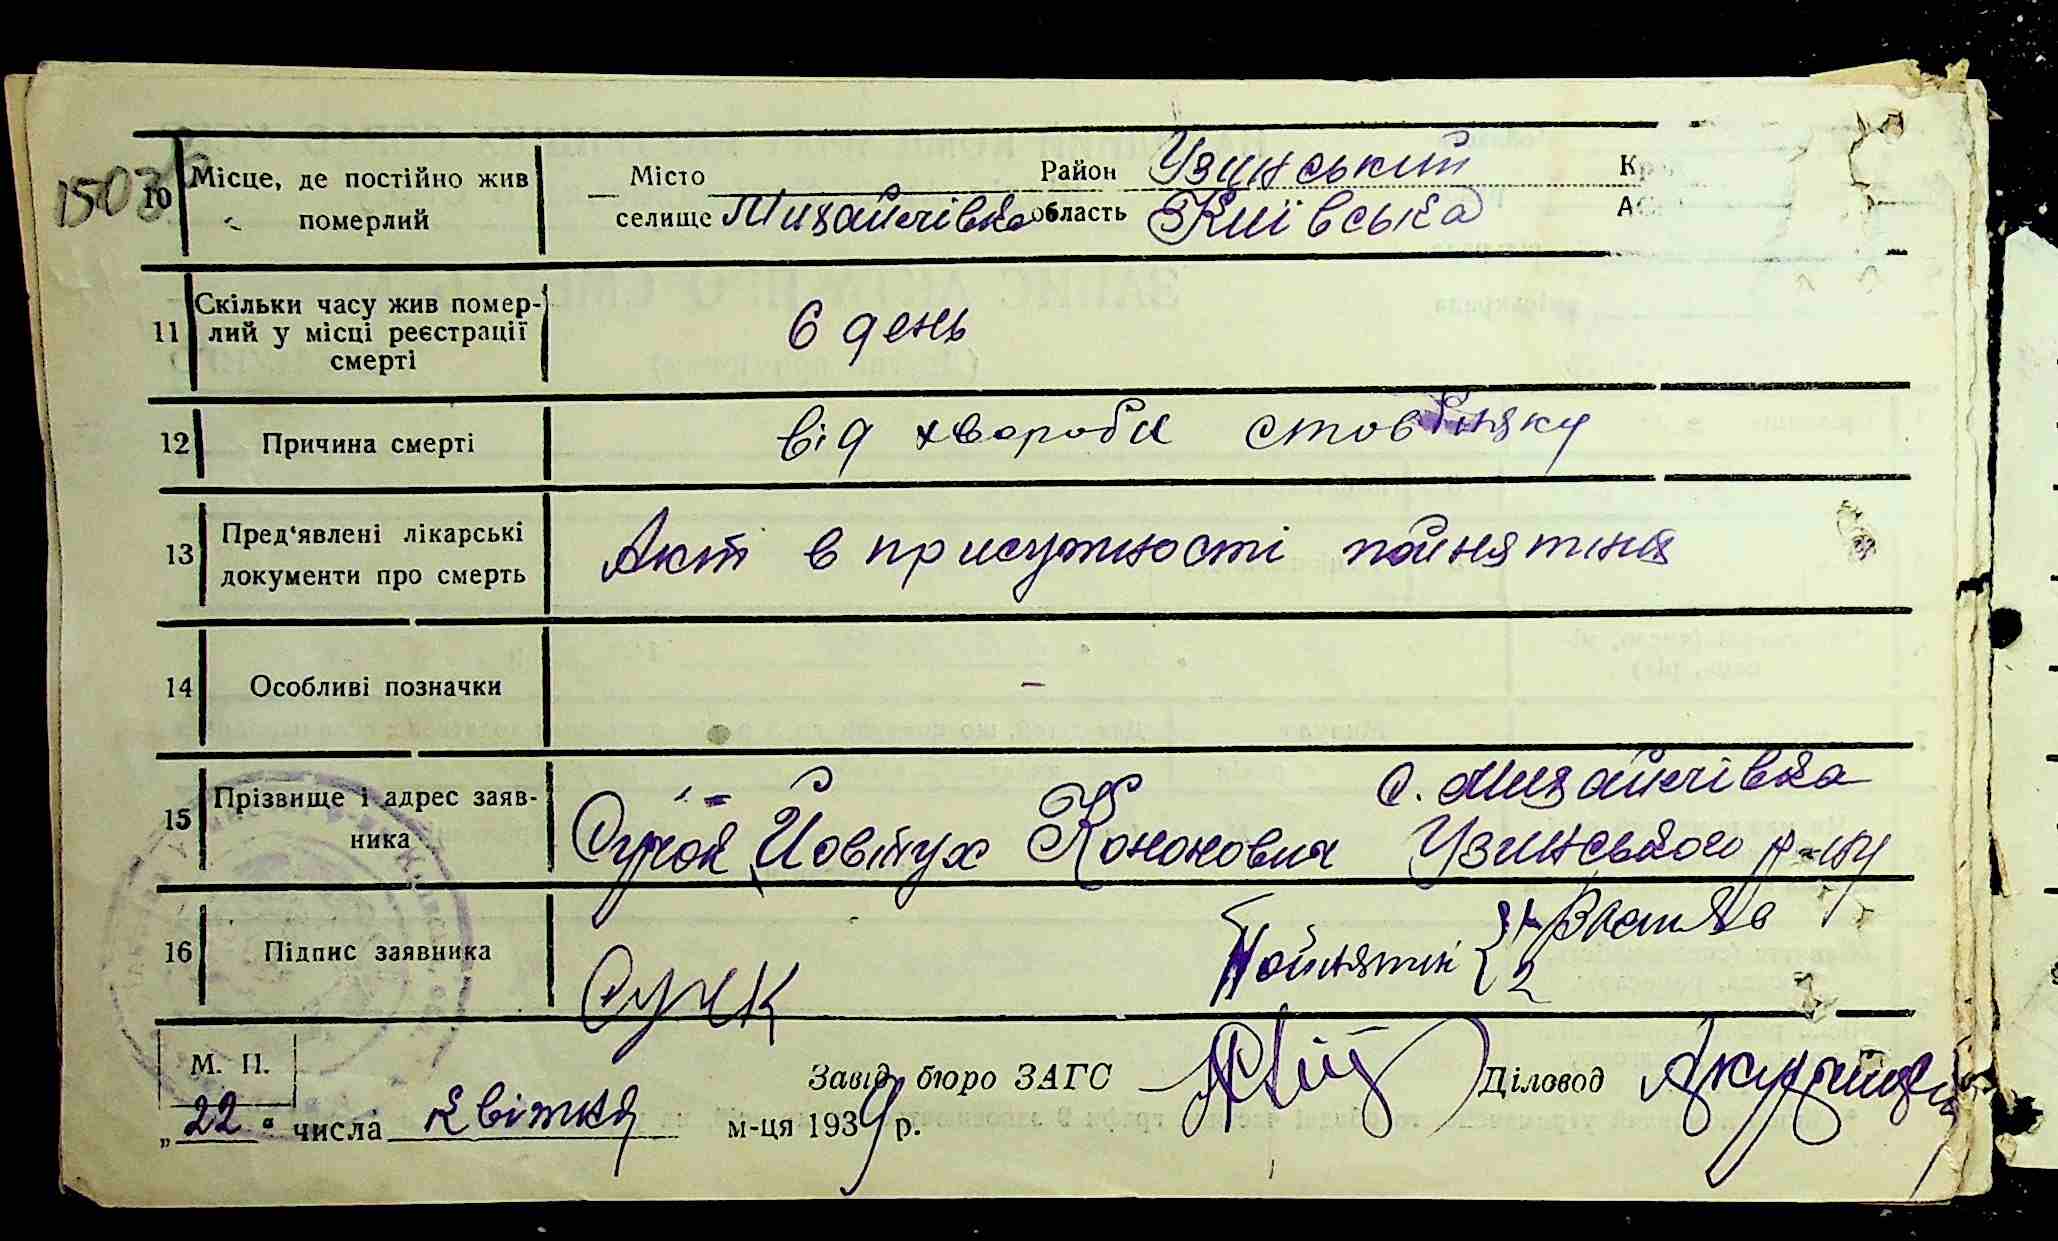 150
10 Місце, де постійно жив померлий
Місто Район Узинський
селище Михайлівка область Київська
11 Скільки часу жив помер-
лий у місці реєстрації
смерті
6 день
12 Причина смерті
від хвороби стовбняку
13 Пред'явлені лікарські
документи про смерть
Акт в присутності пойнятих
14 Особливі позначки
–
15 Прізвище і адрес заяв-
ника
с. Михайлівка
Сухой Йовтух Кононович Узинського р-ну
16 Підпис заявника
Сух К
Пойняті { 1
2
М. П.
Завід. бюро ЗАГС
Діловод
„22“ числа квітня м-ця 1939 р.